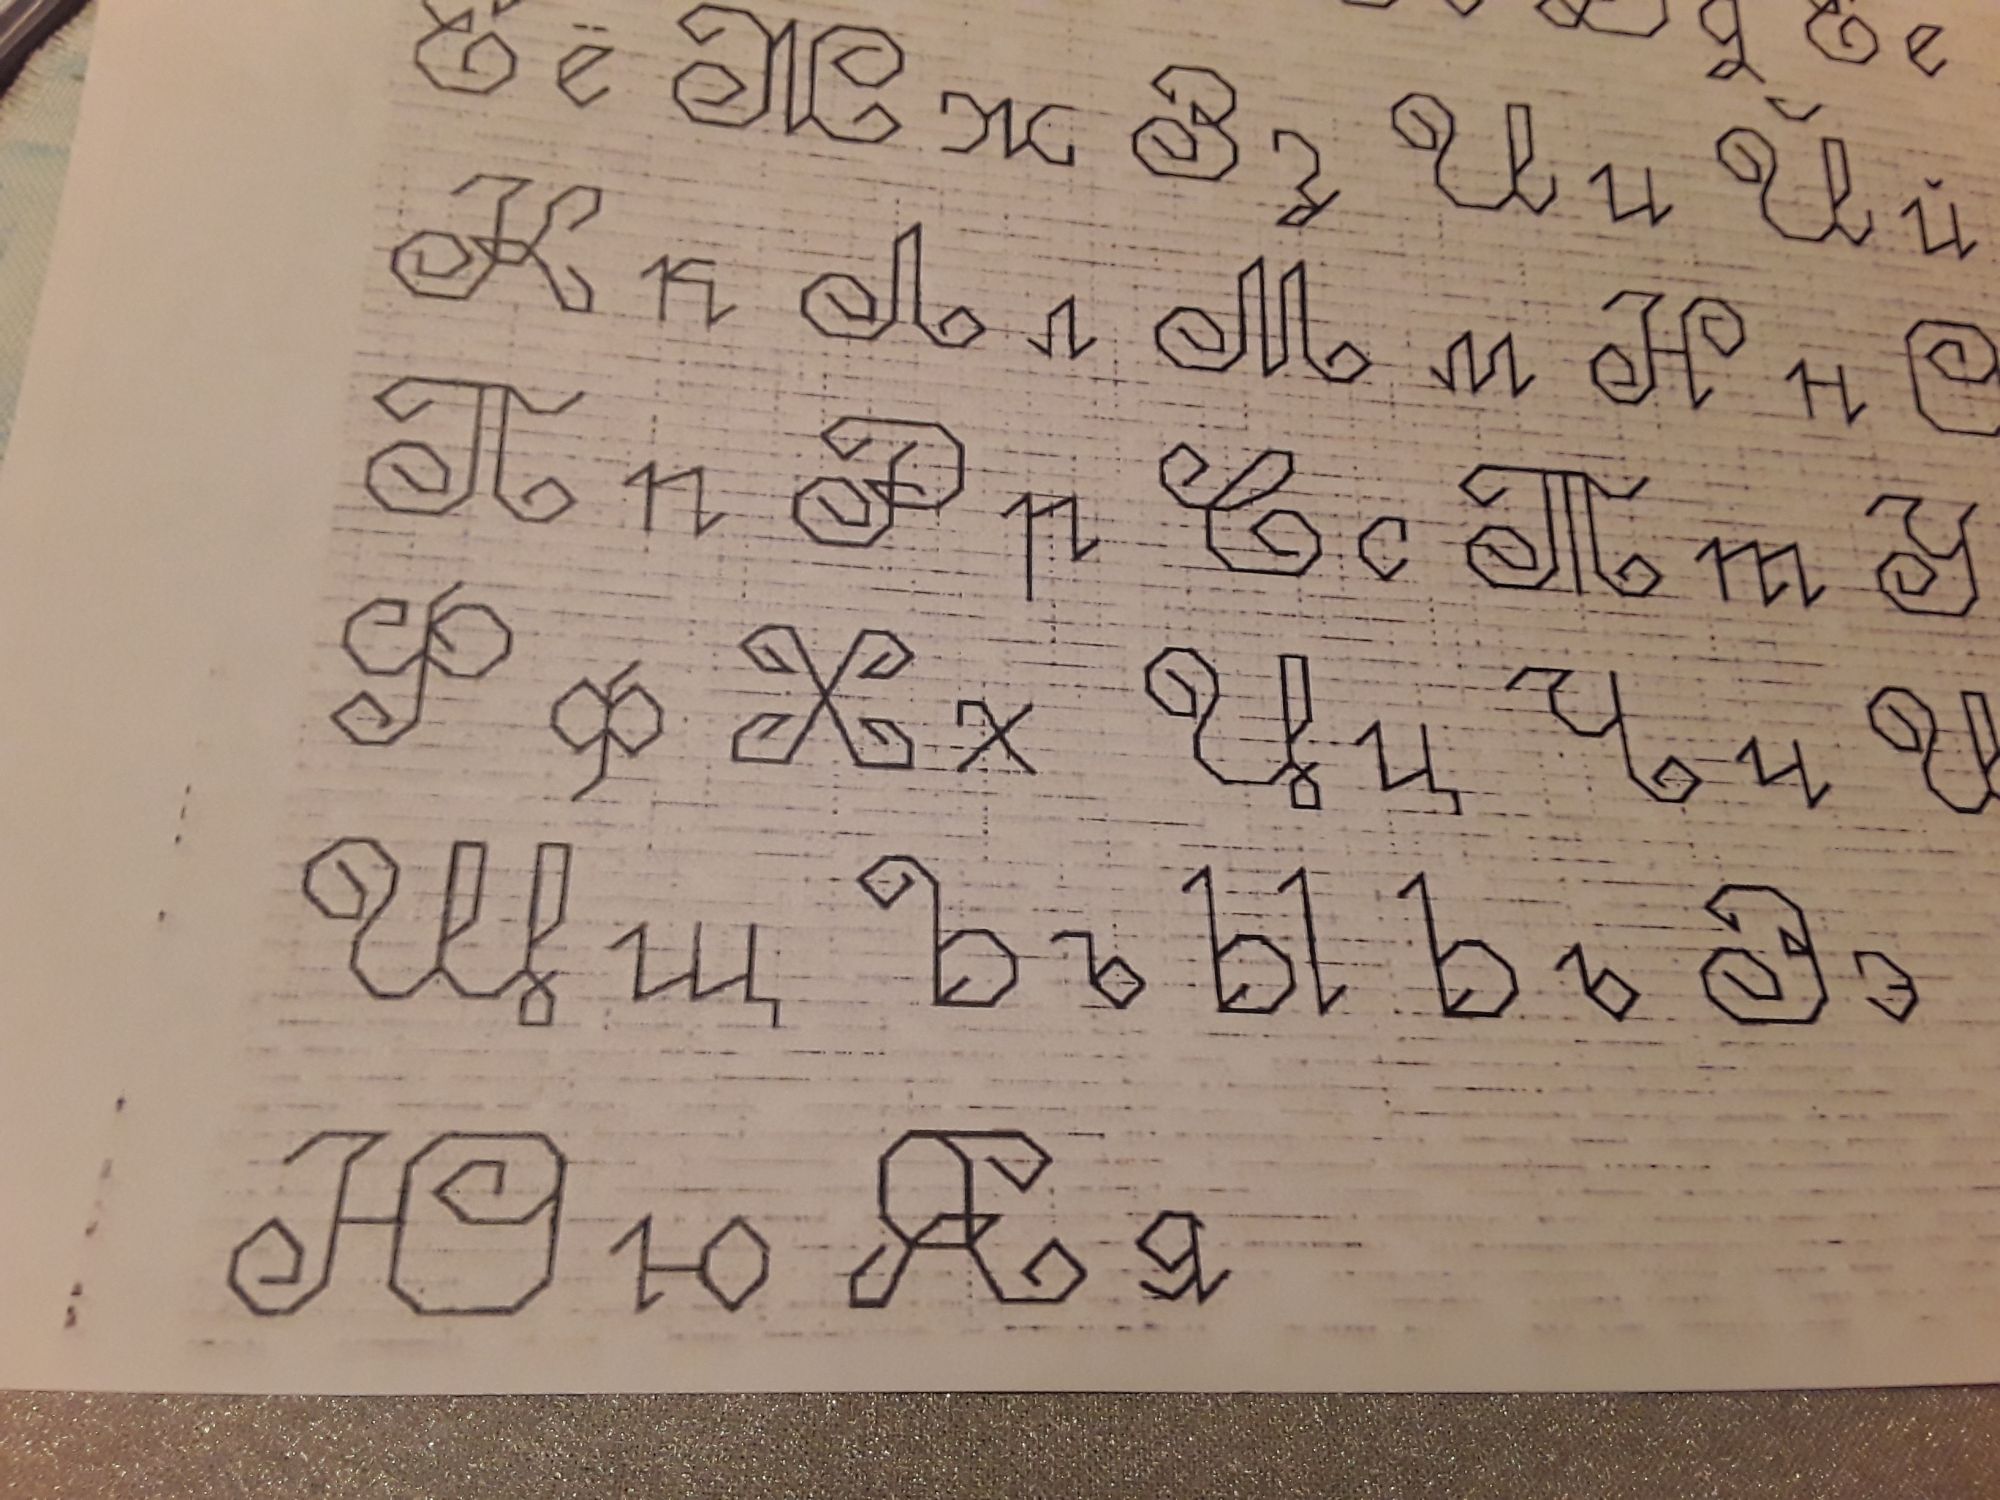 д Е е
Ё ё Ж ж З з И и Й й
К к Л л М м Н н О
П п Р р С с Т т У
Ф ф Х х Ц ц Ч ч
Щ щ Ъ ъ Ы Ь ь Э э
Ю ю Я я